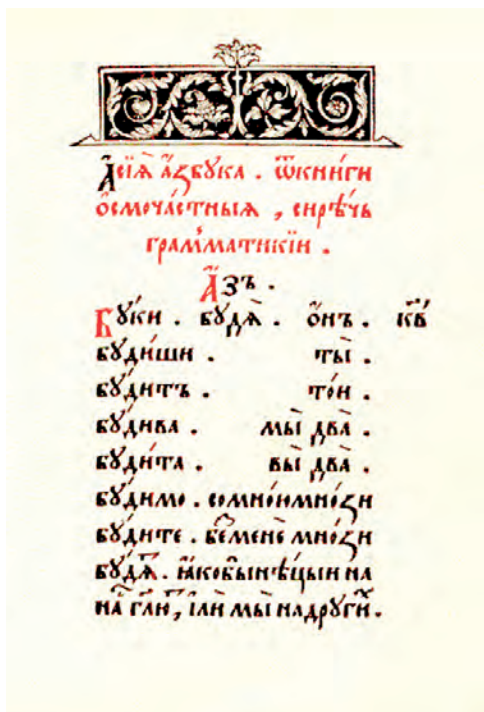 А҆сїѧ̀ а҆́збꙋка . ѿкни́ги
ѻ҆смоча́стныѧ , сирѣ́чь
грамматикі́и .
А҆́зъ .
Бꙋ́ки . бꙋдѧ̀ . ѻ҆́нъ . к҃в
бꙋди́ши . ты̀ .
бꙋ́дитъ . то́и .
бꙋ́дива . мы̀ два̀ .
бꙋди́та . вы̀ два̀ .
бꙋ́димо . сомно́ю мно́ѕи
бꙋ́дите . беменѐ мно́ѕи
бꙋ́дѧт . ꙗ҆́кобы нѣ́цыи на
на̀ гл҃ю , і҆лѝ мы̀ надрꙋги́х .